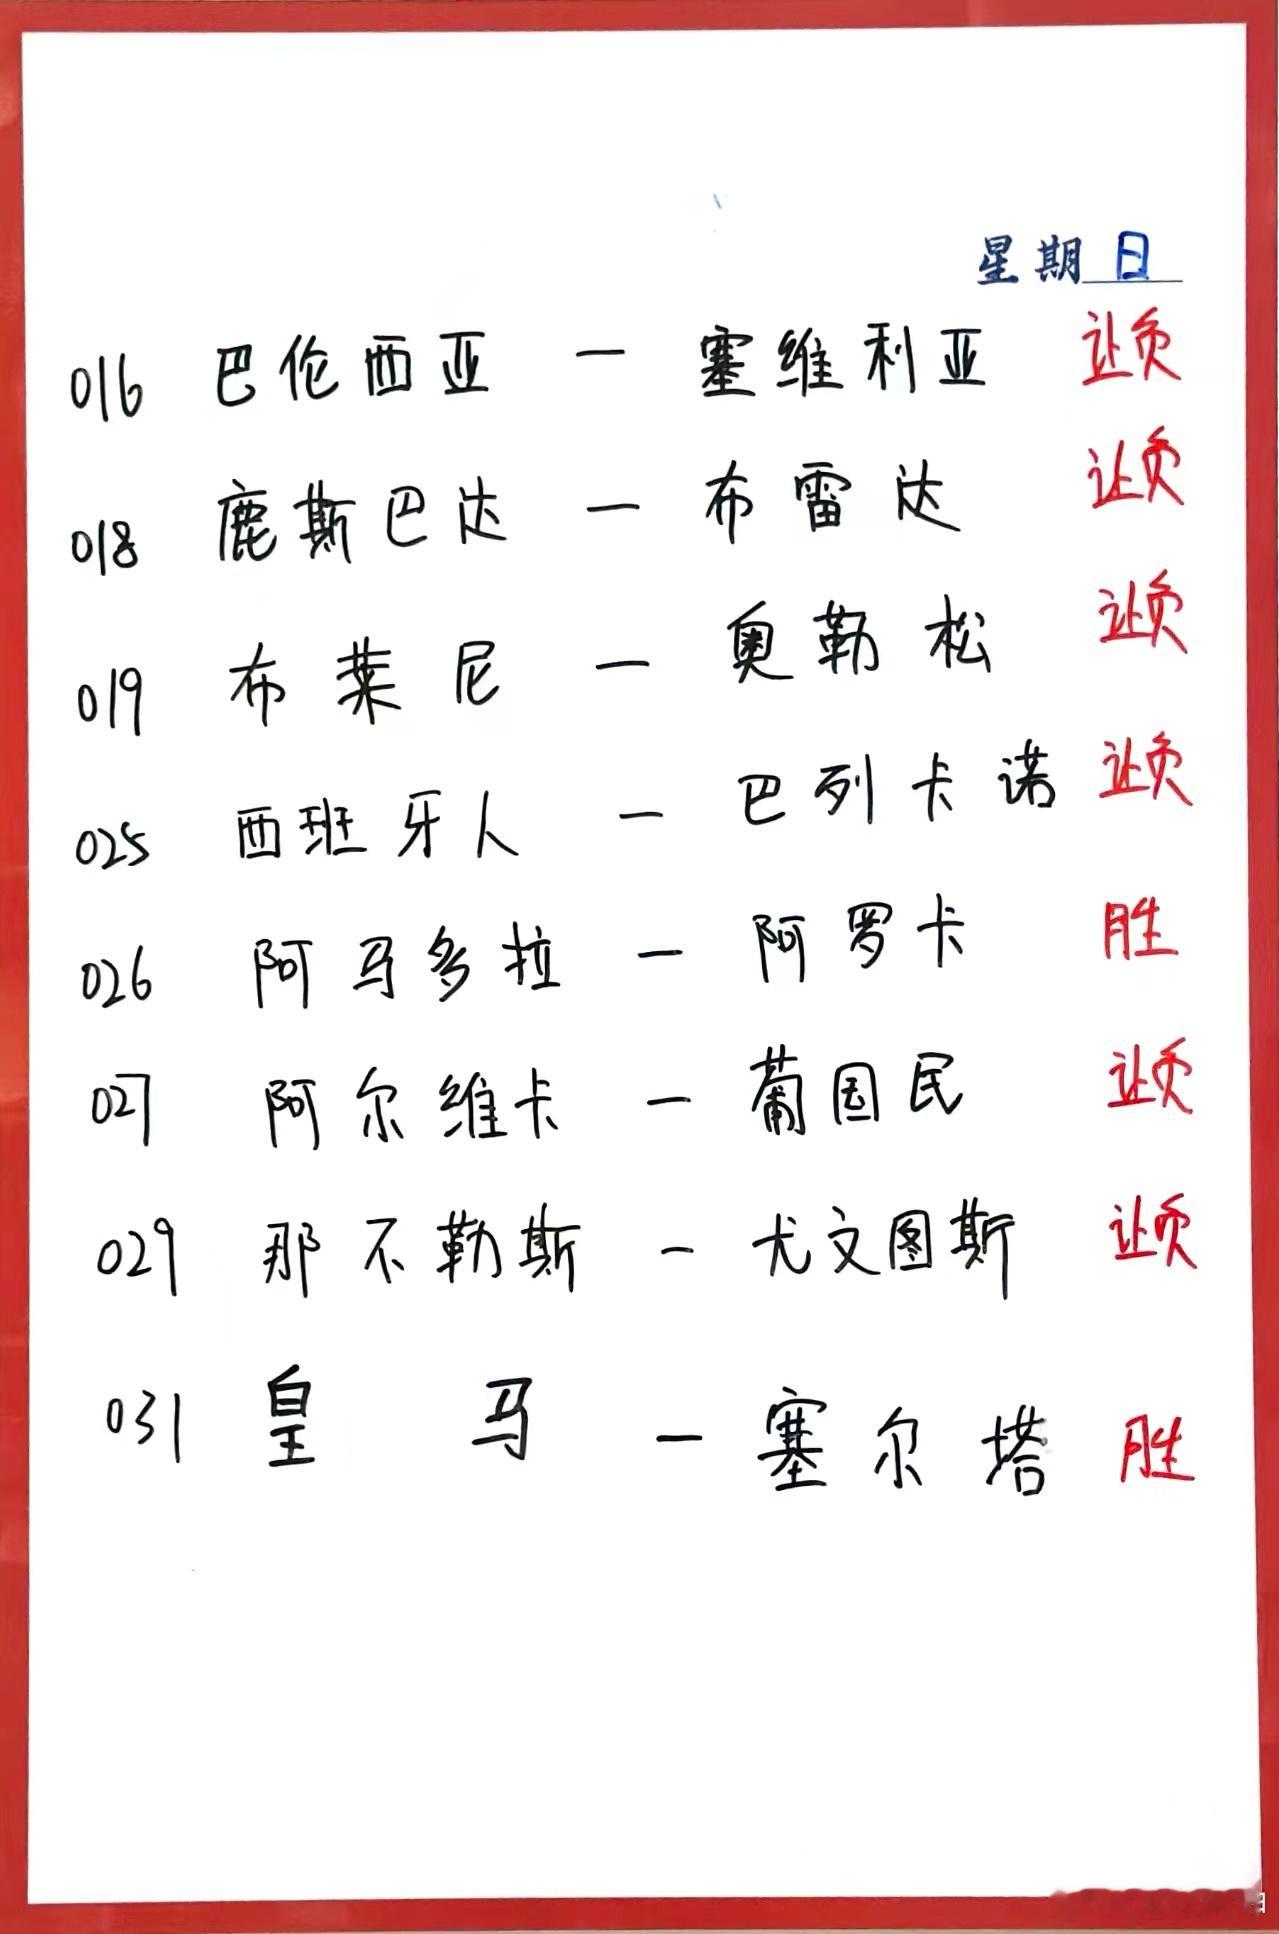 星期日
016 巴伦西亚 — 塞维利亚 让负
018 鹿斯巴达 — 布雷达 让负
019 布莱尼 — 奥勒松 让负
025 西班牙人 — 巴列卡诺 让负
026 阿马多拉 — 阿罗卡 胜
027 阿尔维卡 — 葡国民 让负
029 那不勒斯 — 尤文图斯 让负
031 皇马 — 塞尔塔 胜